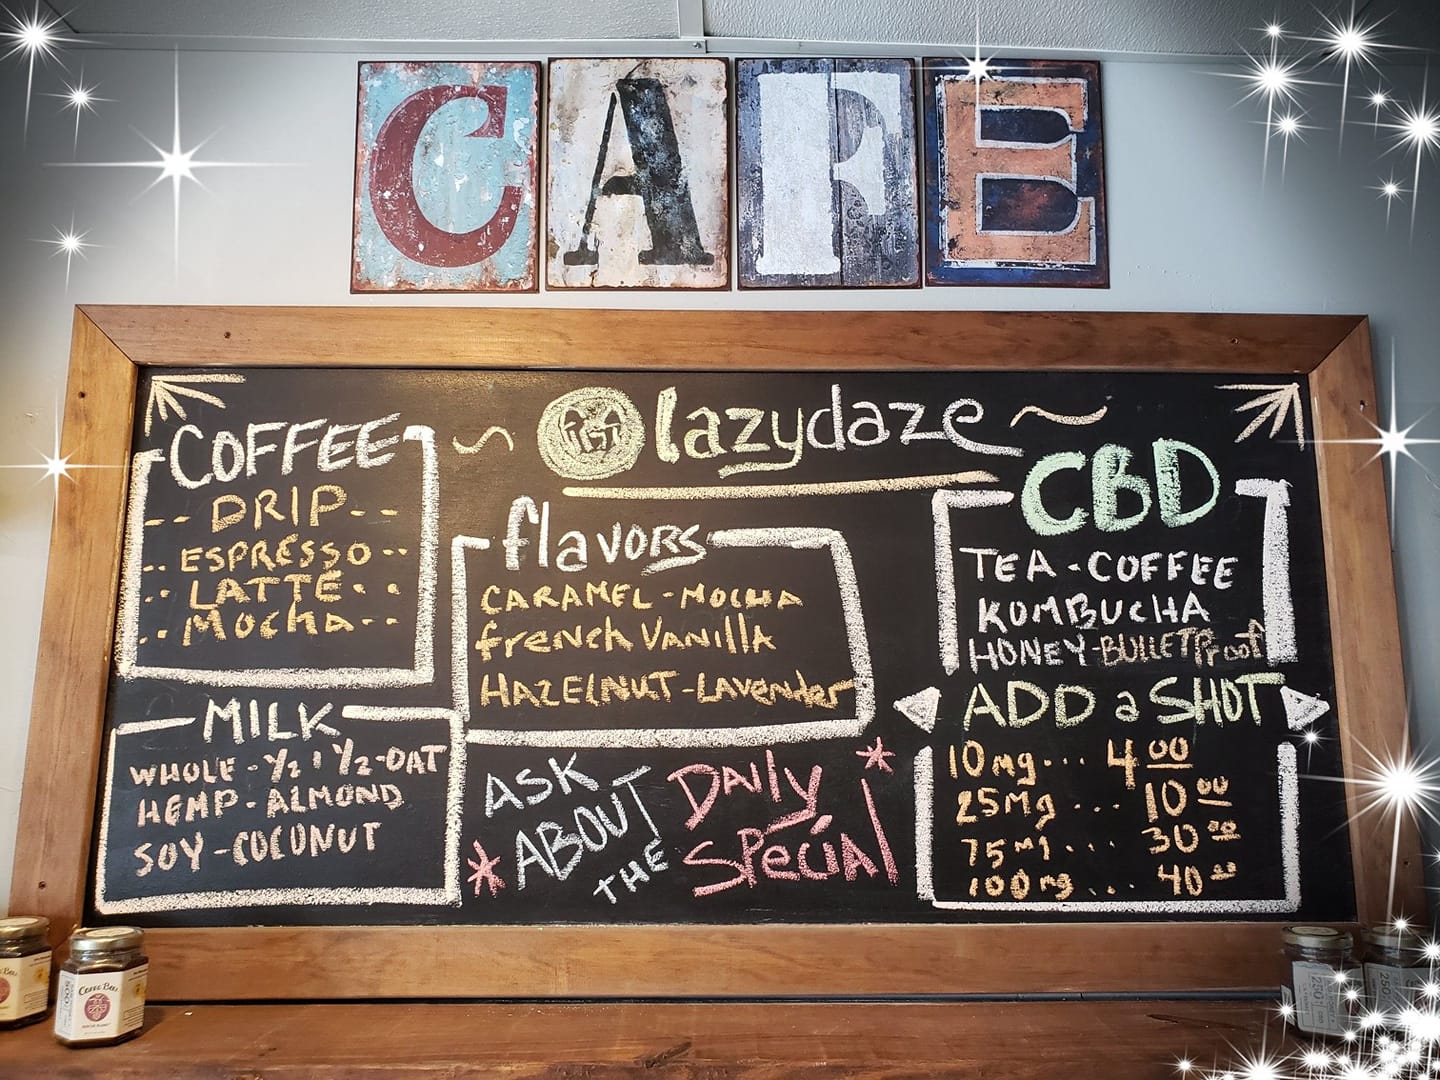 CAFE
lazydaze
COFFEE
-- DRIP --
ESPRESSO
LATTE
MOCHA
MILK
WHOLE - ½ & ½ - OAT
HEMP - ALMOND
SOY - COCONUT
flavors
CARAMEL - MOCHA
french VANILLA
HAZELNUT - LAVENDER
* ASK ABOUT THE
DAILY SPECIAL *
CBD
TEA - COFFEE
KOMBUCHA
HONEY - BULLETPROOF
ADD a SHOT
10mg... 4.00
25mg... 10.00
75mg... 30.00
100mg... 40.00
COFFEE BEES
500
250